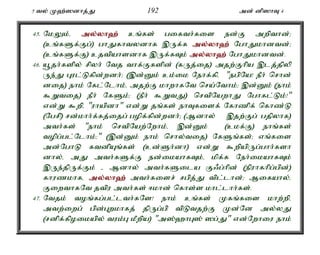 5 வல் முஹ்ஸனாத்து 192 அன் னிஸாஃ 4
45. மேலும், அல்லாஹ் உங்கள் பகைவர்களை நன்கு அறிவான்;
(உங்களுக்குப்) பாதுகாவலனாக இருக்க அல்லாஹ் போதுமானவன்;
(உங்களுக்கு) உதவியாளனாக இருக்கவும் அல்லாஹ் போதுமானவன்.
46. யூதர்களில் சிலர் வேத வாக்குகளின் (கருத்தை) அதற்குரிய இடத்திலி
ருந்து புரட்டுகின்றனர்; (இன்னும் உம்மை நோக்கி, "நபியே! நீர் சொன்
னதை) நாம் கேட்டோம், அதற்கு மாறாகவே செய்வோம்; இன்னும் (நாம்
கூறுவதை) நீர் கேளும்; (நீர் கூறுவது) செவியேறாது போகட்டும்!"
என்று கூறி, "ராயினா" என்று தங்கள் நாவுகளைக் கோணிக் கொண்டு
(பேசி) சன்மார்க்கத்தைப் பழிக்கின்றனர்; (ஆனால் இதற்குப் பதிலாக)
அவர்கள் "நாம் செவியேற்றோம், இன்னும் (உமக்கு) நாங்கள்
வழிப்பட்டோம்;" (இன்னும் நாம் சொல்வதை) கேளுங்கள்; எங்களை
அன்போடு கவனியுங்கள் (உன்ளுர்னா) என்று கூறியிருப்பார்களா
னால், அது அவர்களுக்கு நன்மையாகவும், மிக்க நேர்மையாகவும்
இருந்திருக்கும் - ஆனால் அவர்களுடைய குஃப்ரின் (நிராகரிப்பின்)
காரணமாக, அல்லாஹ் அவர்களைச் சபித்து விட்டான்; ஆகையால்,
குறைவாகவே தவிர அவர்கள் ஈமான் கொள்ள மாட்டார்கள்.
47. வேதம் வழங்கப்பட்டவர்களே! நாம் உங்கள் முகங்களை மாற்றி,
அவற்றைப் பின்புறமாகத் திருப்பி விடுவதற்கு முன்னே அல்லது
(சனிக்கிழமையில் வரம்பு மீறிய) "அஸ்ஹாபுஸ் ஸப்து" என்றோரை நாம்